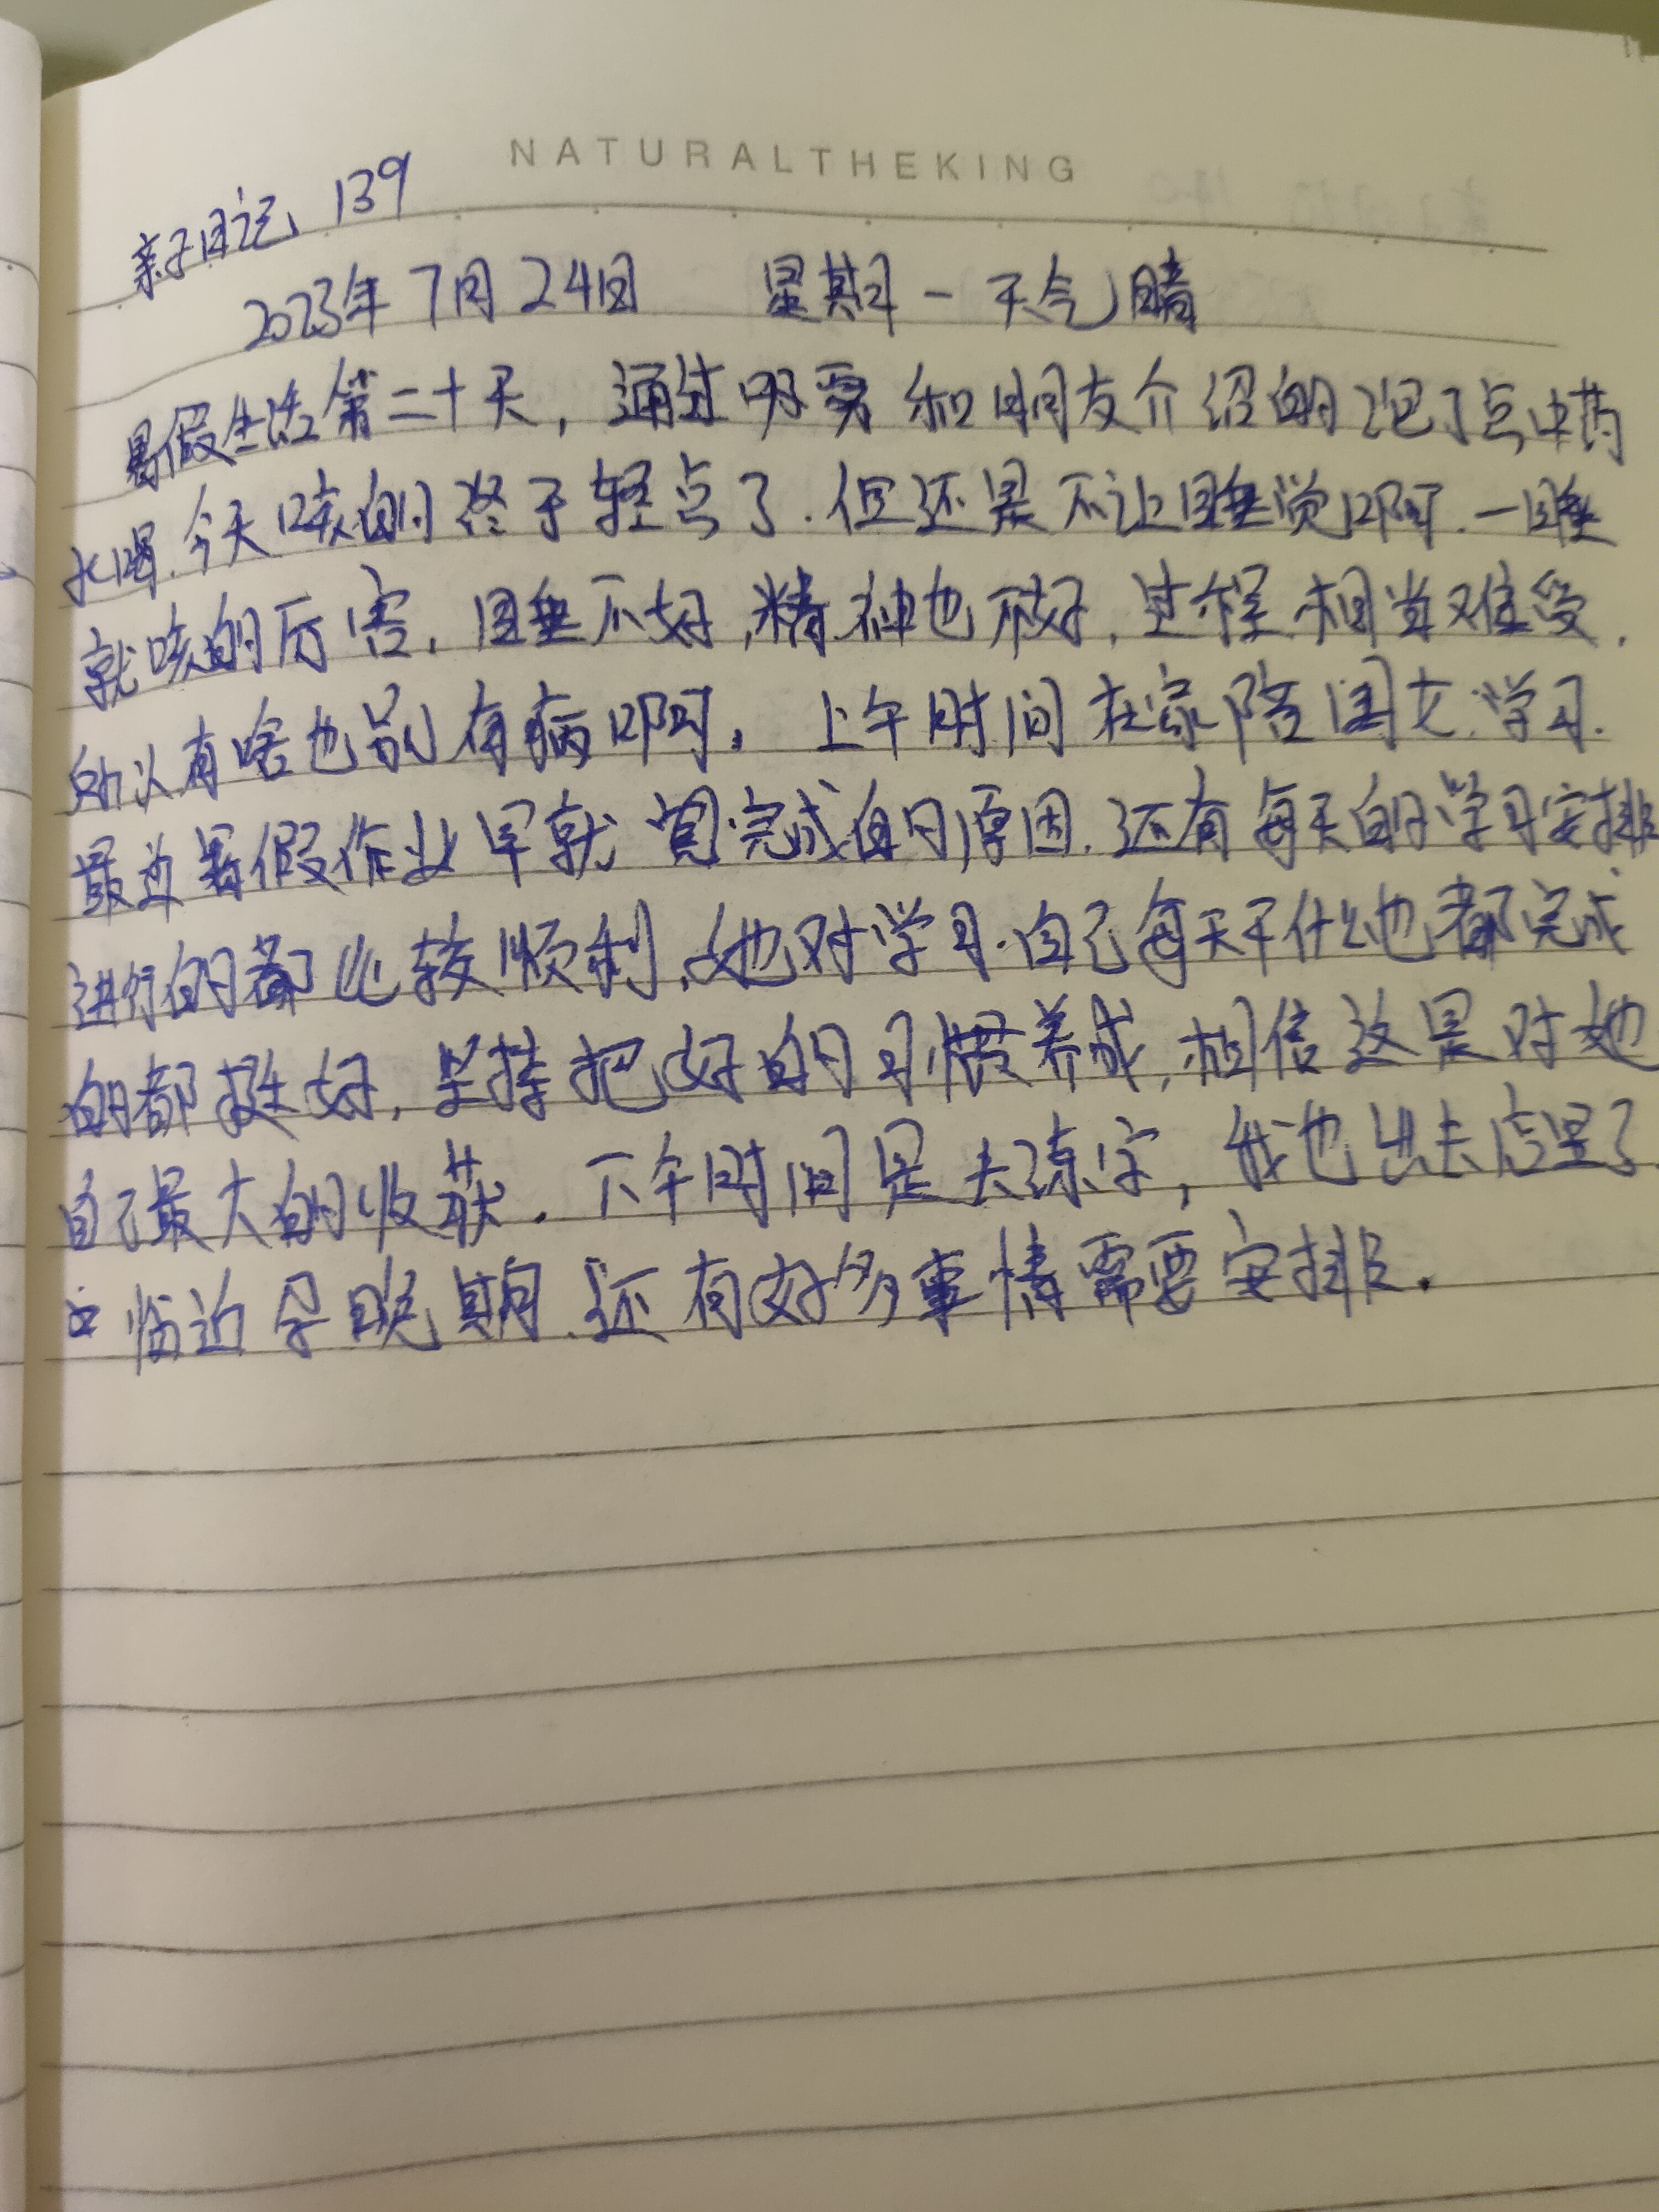 NATURALTHEKING
亲子日记 139
2023年7月24日 星期一 天气晴
暑假生活第二十天，通过吃药和朋友介绍的泡了点中药
水喝.今天咳的终于轻点了.但还是不让睡觉啊.一睡
就咳的厉害，睡不好，精神也不好，过程相当难受，
所以有啥也别有病啊。上午时间在家陪闺女学习.
最近暑假作业早就完成的原因.还有每天的学习安排
进行的都比较顺利，她对学习.自己每天干什么也都完成
的都挺好，坚持把好的习惯养成，相信这是对她
自己最大的收获.下午时间是去练字，我也出去店里了
临近孕晚期.还有好多事情需要安排.